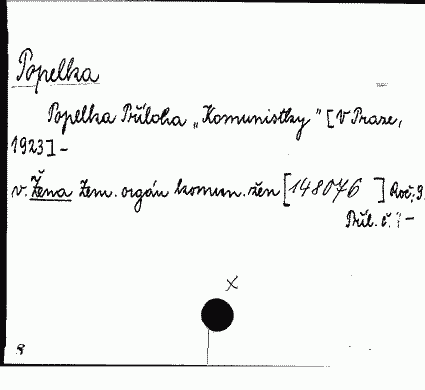 Popelka
Popelka Příloha „Komunistky" [V Praze,
1923] -
v. Žena Zem. orgán komun. žen [148076 ] Roč. 9.
Příl. č. 1 -
x